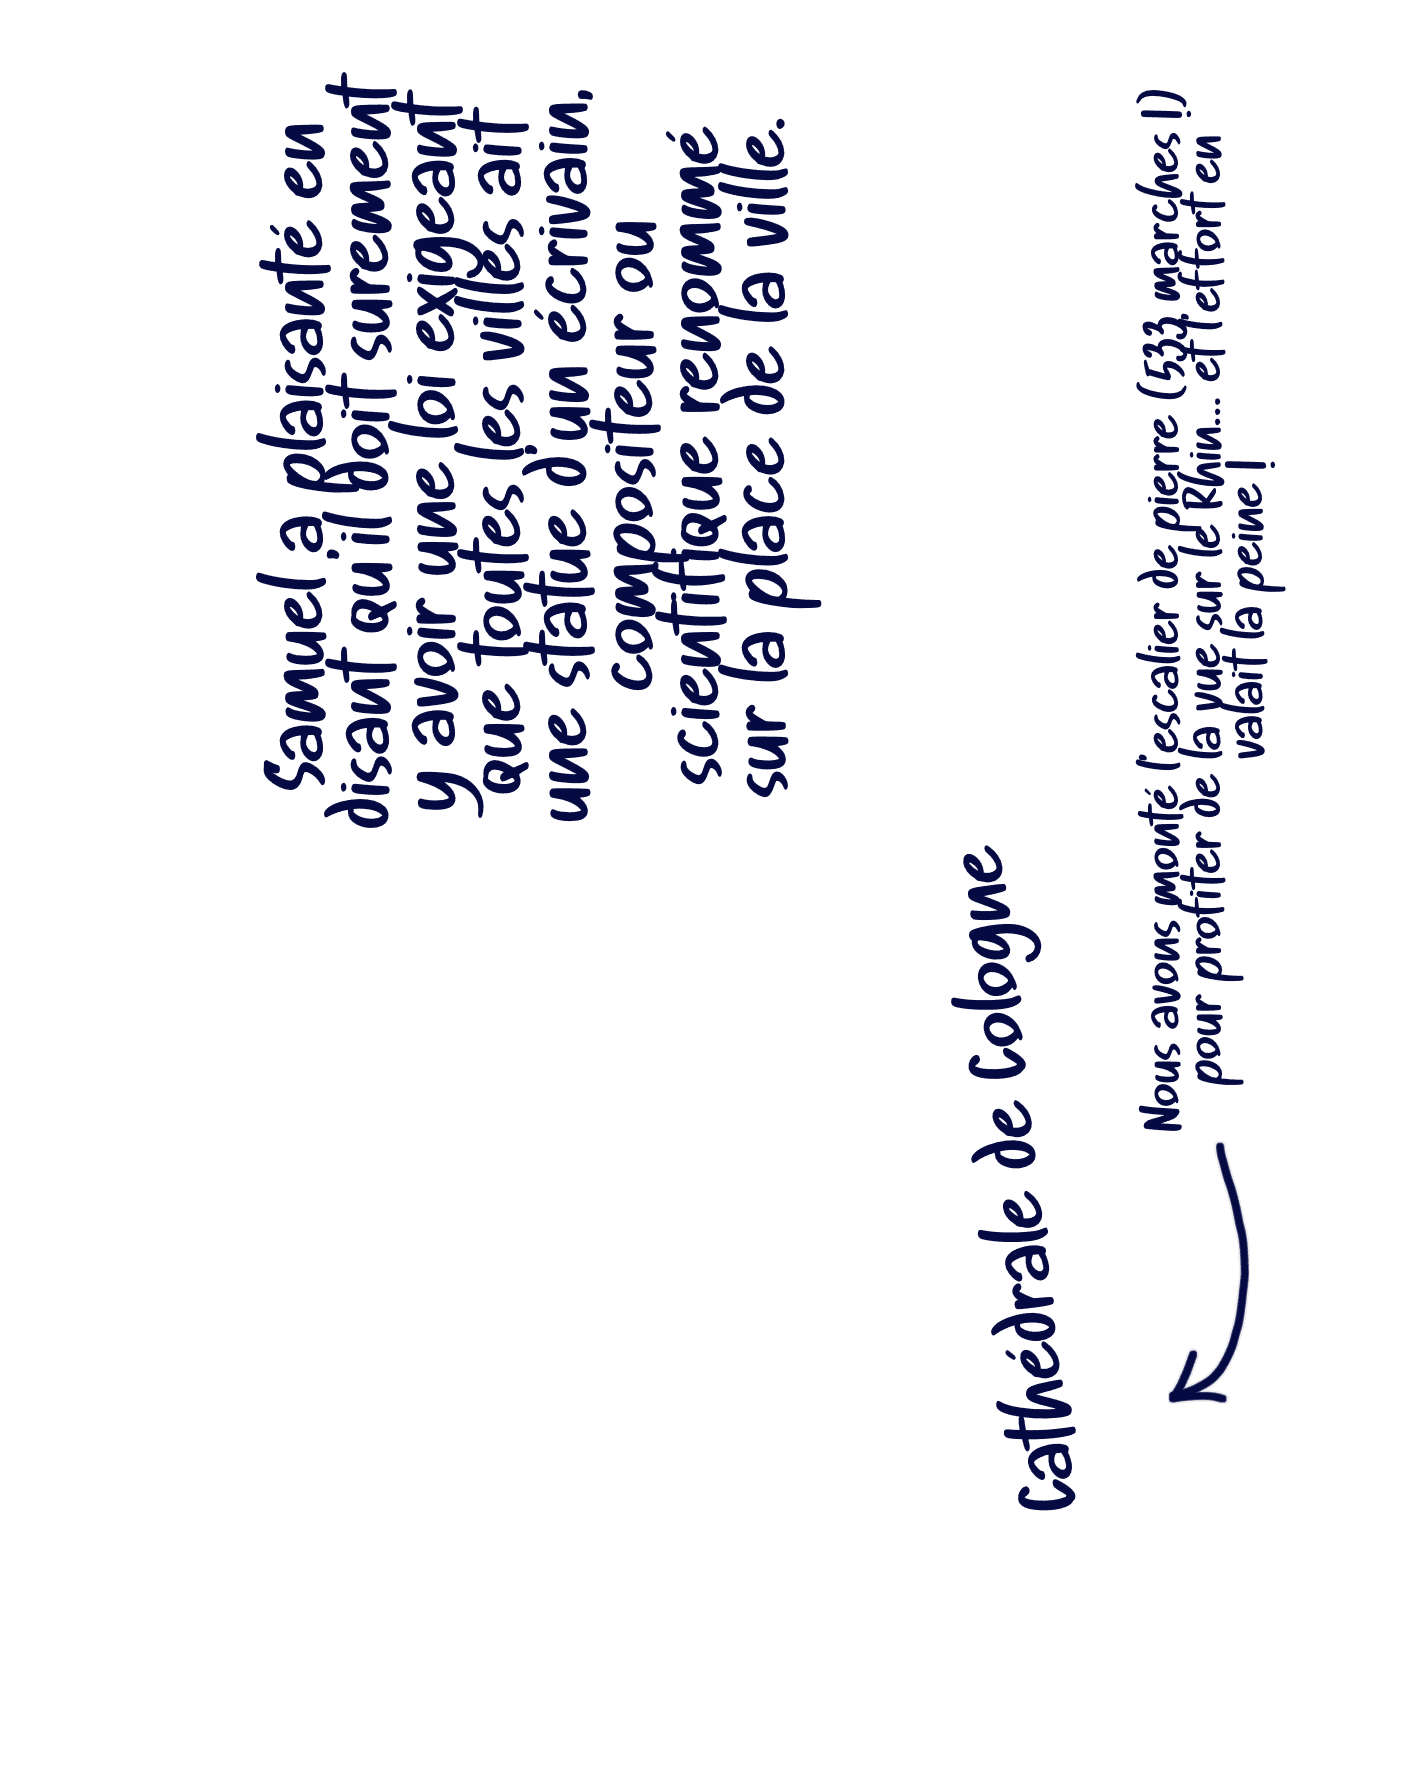 Samuel a plaisanté en
disant qu'il doit surement
y avoir une loi exigeant
que toutes les villes ait
une statue d'un écrivain,
compositeur ou
scientifique renommé
sur la place de la ville.
Cathédrale de Cologne
Nous avons monté l'escalier de pierre (533 marches !)
pour profiter de la vue sur le Rhin... et l'effort en
valait la peine !